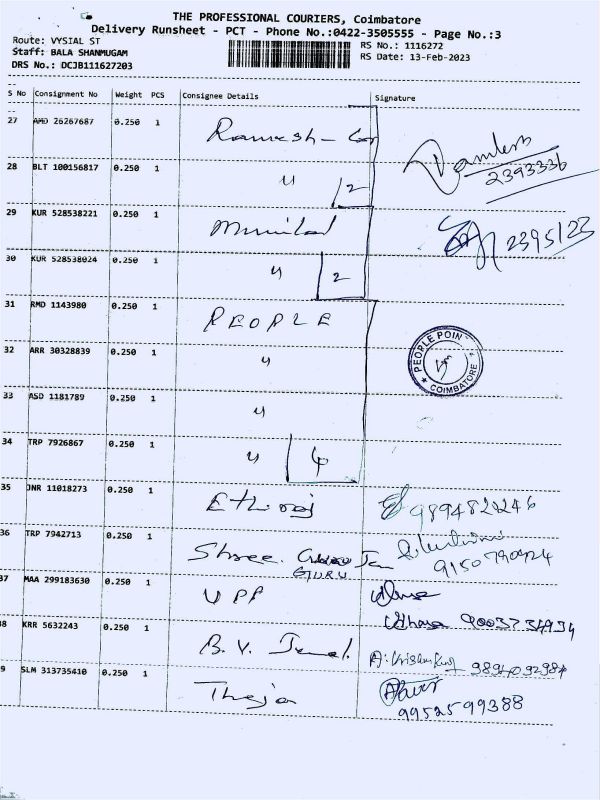 THE PROFESSIONAL COURIERS, Coimbatore
Delivery Runsheet - PCT - Phone No.:0422-3505555 - Page No.:3
Route: VYSIAL ST
Staff: BALA SHANMUGAM
DRS No.: DCJB111627203
RS No.: 1116272
RS Date: 13-Feb-2023
S No Consignment No Weight PCS Consignee Details Signature
27 AMD 26267687 0.250 1 Ramesh
28 BLT 100156817 0.250 1 " 2 2393336
29 KUR 528538221 0.250 1 2395123
30 KUR 528538024 0.250 1 " 2
31 RMD 1143980 0.250 1 PEOPLE
32 ARR 30328839 0.250 1 " PEOPLE POIN COIMBATORE
33 ASD 1181789 0.250 1 "
34 TRP 7926867 0.250 1 " 4
35 JNR 11018273 0.250 1 Ethiraj
36 TRP 7942713 0.250 1 Shree GURU
37 MAA 299183630 0.250 1 UPP
38 KRR 5632243 0.250 1 B. V.
39 SLM 313735410 0.250 1 Theja
9952599388